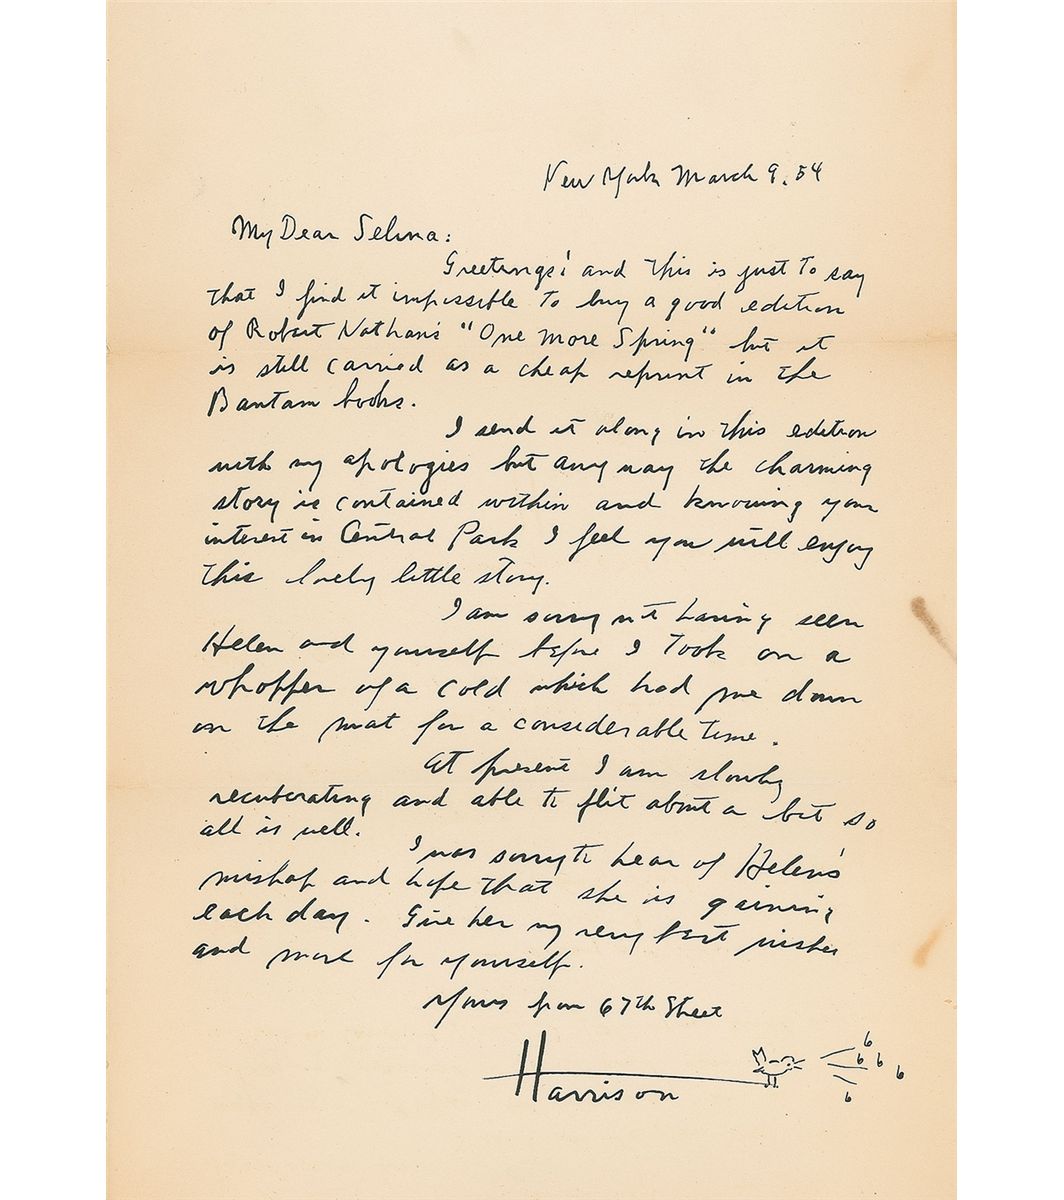 New York March 9. 54
My Dear Selma:
Greetings! and this is just to say
that I find it impossible to buy a good edition
of Robert Nathan's "One More Spring" but it
is still carried as a cheap reprint in the
Bantam books.
I send it along in this edition
with my apologies but anyway the charming
story is contained within and knowing your
interest in Central Park I feel you will enjoy
this lovely little story.
I am sorry not having seen
Helen and yourself before I took on a
whopper of a cold which had me down
on the mat for a considerable time.
At present I am slowly
recuberating and able to flit about a bit so
all is well.
I was sorry to hear of Helen's
mishap and hope that she is gaining
each day. Give her my very best wishes
and most for yourself.
Yours from 67th Street
Harrison
6
6 6 6
6